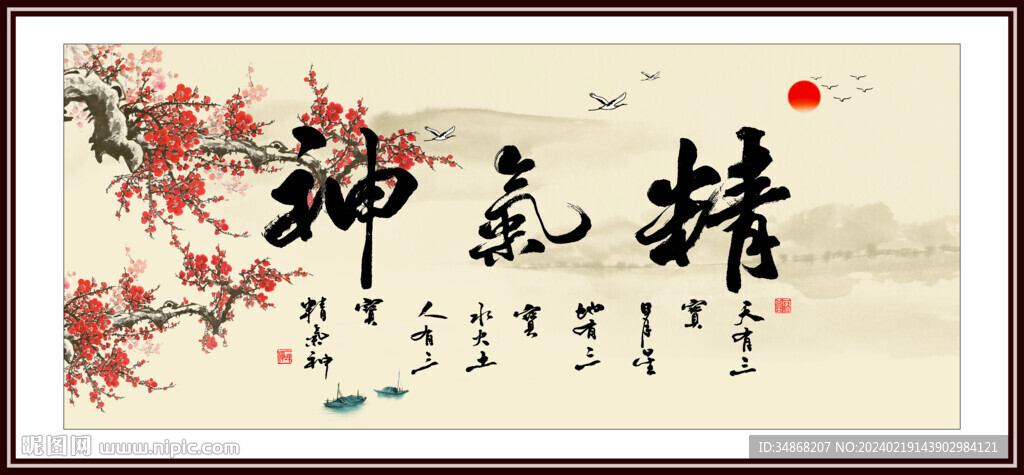 精氣神
天有三
寶
日月星
地有三
寶
水火土
人有三
寶
精氣神
昵图网 www.nipic.com
ID:34868207 NO:20240219143902984121